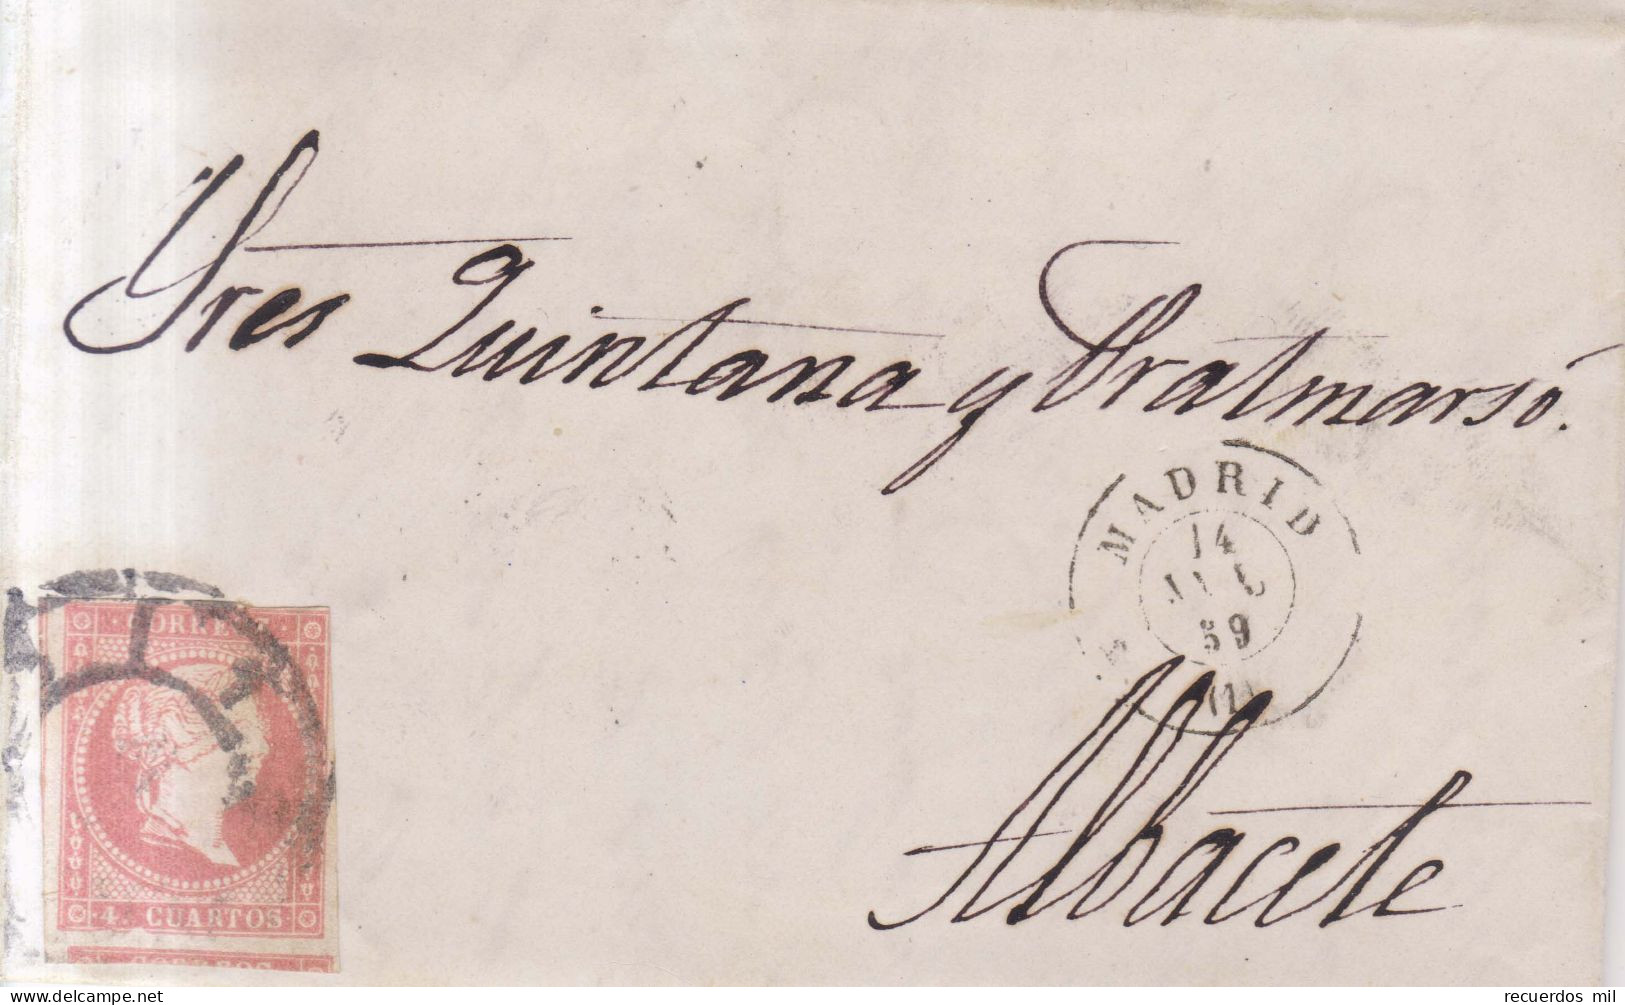 Sres Quintana y Pratmarsó.
MADRID
14
JUL
59
(1)
Albacete
CORREOS
4 CUARTOS
CORREOS
delcampe.net
recuerdos mil